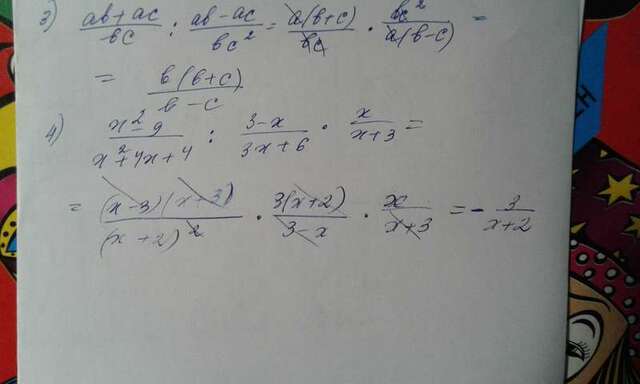 3) (ab+ac)/(bc) : (ab-ac)/(bc²) = a(b+c)/(bc) · bc²/(a(b-c)) =
= b(b+c)/(b-c)
4) (x²-9)/(x²+4x+4) : (3-x)/(3x+6) · x/(x+3) =
= (x-3)(x+3)/(x+2)² · 3(x+2)/(3-x) · x/(x+3) = - 3/(x+2)